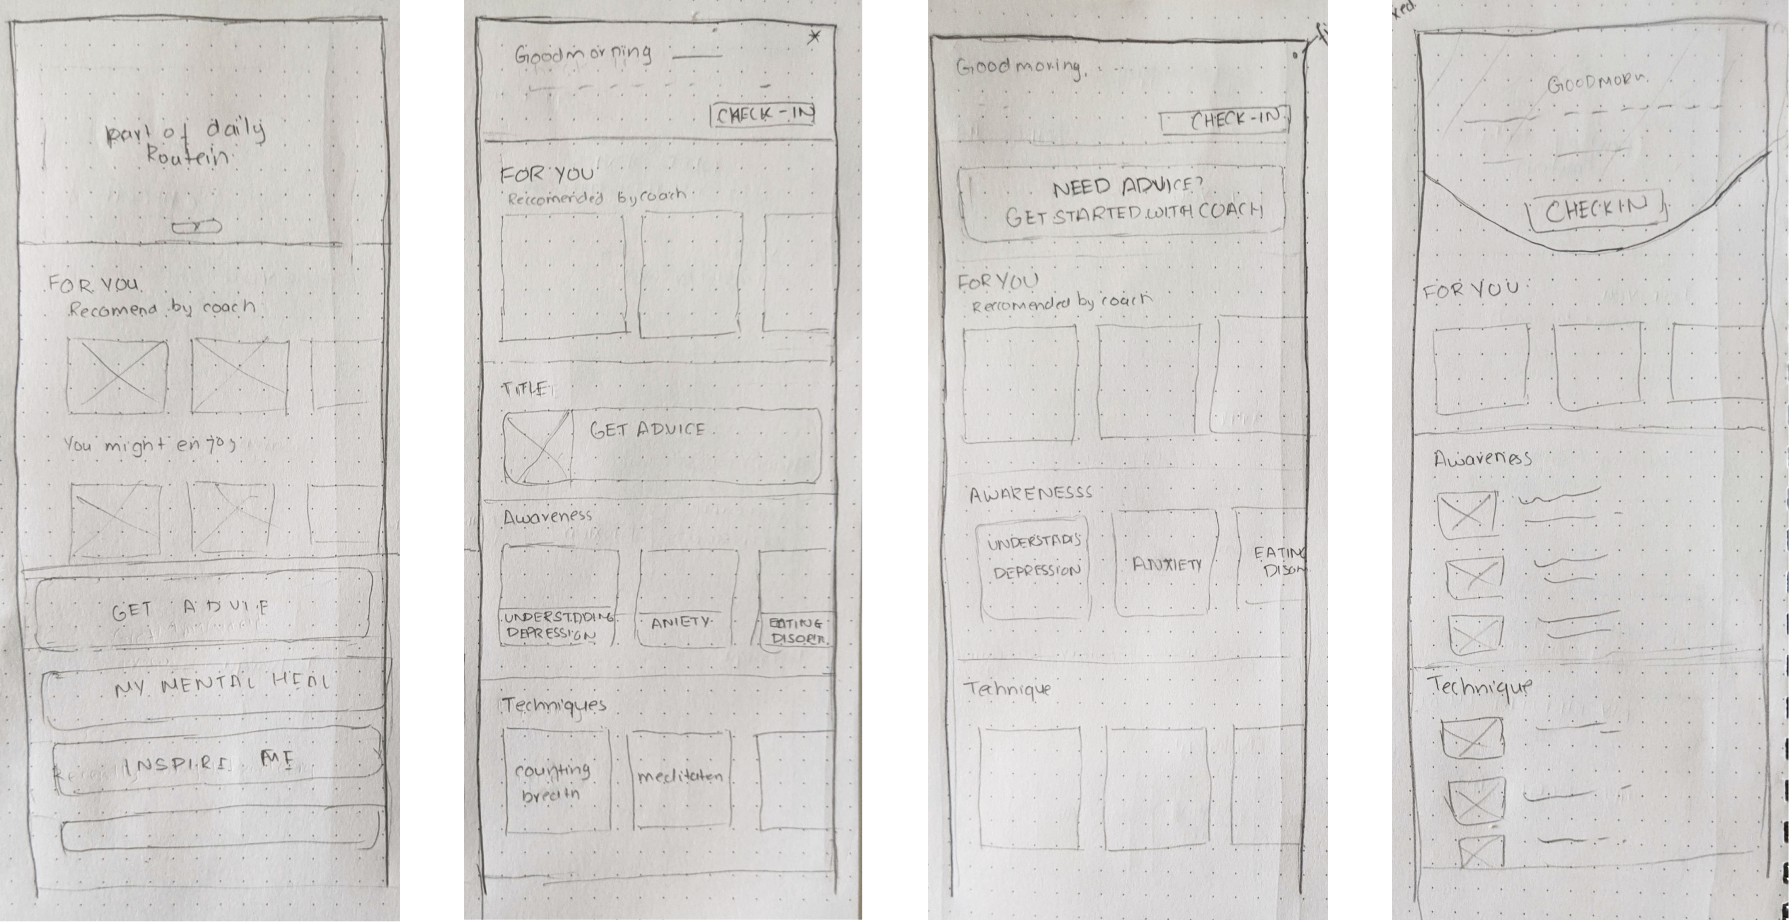 part of daily
Routein
FOR YOU.
Recomend by coach
You might enjoy
GET ADVIE
MY MENTAL HEAL
INSPIRE ME
Goodmorning
CHECK-IN
FOR YOU
Reccomended by coach
TITLE
GET ADVICE
Awareness
UNDERSTDDING
DEPRESSION
ANIETY
EATING
DISORR.
Techniques
counting
breath
meditaten
Goodmoring,
CHECK-IN
NEED ADVICE?
GET STARTED WITH COACH
FOR YOU
Recomended by coach
AWARENESSS
UNDERSTADIS
DEPRESSION
ANXIETY
EATING
DISOR
Technique
xed.
GOODMORN.
CHECKIN
FOR YOU
Awareness
Technique